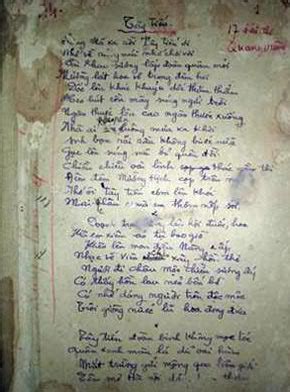 Tây Tiến
17
Quang Dũng
Sông Mã xa rồi Tây Tiến ơi
Nhớ về rừng núi nhớ chơi vơi
Sài Khao sương lấp đoàn quân mỏi
Mường Lát hoa về trong đêm hơi
Dốc lên khúc khuỷu dốc thăm thẳm
Heo hút cồn mây súng ngửi trời
Ngàn thước lên cao ngàn thước xuống
Nhà ai mưa xa khơi
Anh bạn dãi dầu không bước nữa
Gục lên súng mũ bỏ quên đời
Chiều chiều oai linh thác gầm thét
Đêm đêm Mường Hịch cọp trêu người
Nhớ ôi Tây Tiến cơm lên khói
Mai Châu mùa em thơm nếp xôi
Doanh trại lên hội đuốc hoa
Kìa em xiêm áo tự bao giờ
Khèn lên man điệu nàng e ấp
Nhạc về Viên xây hồn thơ
Người đi Châu Mộc chiều sương ấy
Có thấy hồn lau nẻo bến bờ
Có nhớ dáng người trên độc mộc
Trôi dòng nước lũ hoa đong đưa
Tây Tiến đoàn binh không mọc tóc
Quân xanh màu lá dữ oai hùm
Mắt trừng gửi mộng qua biên giới
Đêm mơ Hà Nội